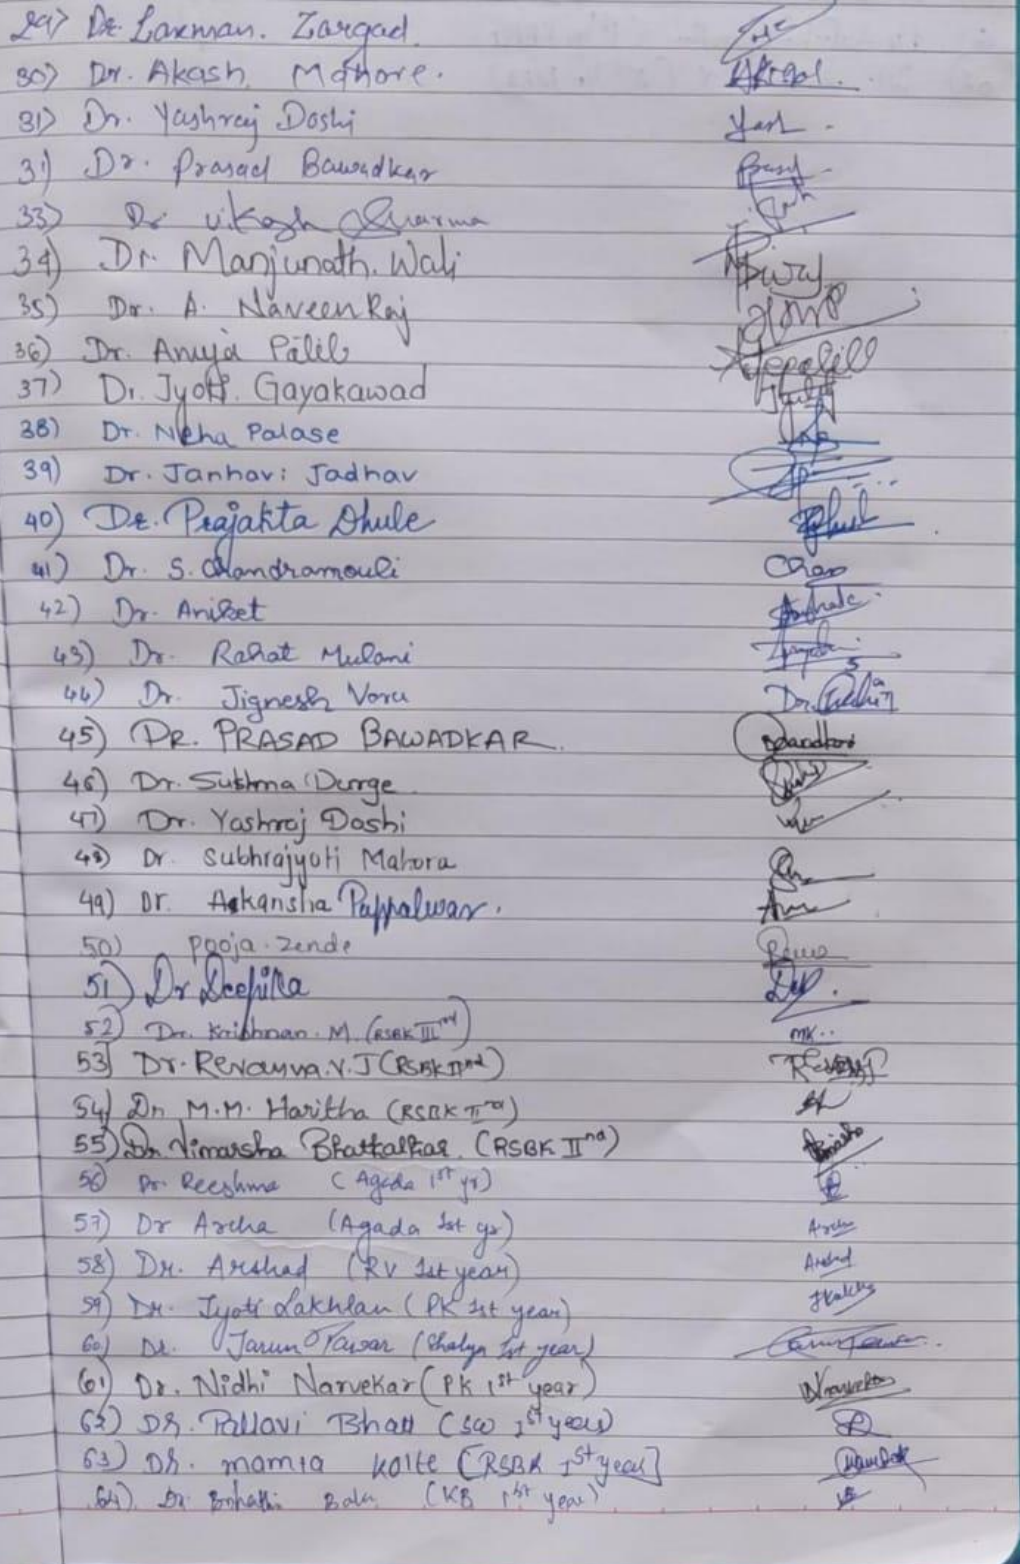 29) Dr. Laxman. Zargad.
30) Dr. Akash Mahore. Akash.
31) Dr. Yashraj Doshi Yash.
31) Dr. Prasad Bawadkar
33) Dr Vikash Sharma
34) Dr. Manjunath. Wali
35) Dr. A. Naveen Raj
36) Dr. Anuja Palil
37) Dr. Jyoti. Gayakawad
38) Dr. Neha Palase
39) Dr. Janhavi Jadhav
40) Dr. Prajakta Dhule
41) Dr. S. Chandramouli
42) Dr. Aniket
43) Dr. Rahat Mulani
44) Dr. Jignesh Voru
45) DR. PRASAD BAWADKAR.
46) Dr. Sushma Durge
47) Dr. Yashraj Doshi
48) Dr. Subhrajyoti Mahora
49) Dr. Aakansha Pappalwar.
50) Pooja. Zende
51) Dr Deepika
52) Dr. Krishnan. M. (RSBK IIIrd) MK..
53) Dr. Revamma. V. J (RSBK IInd)
54) Dr M.M. Haritha (RSBK IInd)
55) Dr Vimarsha Bhatkalkar (RSBK IInd)
56) Dr. Reeshma (Agada 1st yr)
57) Dr Archa (Agada 1st yr) Archa
58) Dr. Arshad (RV 1st year) Arshad
59) Dr. Jyoti Lakhlan (PK 1st year)
60) Dr. Tarun Pawar (Shalya 1st year)
61) Dr. Nidhi Narvekar (PK 1st year) Nnarvekar
62) Dr. Pallavi Bhatt (SW 1st year)
63) Dr. mamta kolte [RSBK 1st year]
64) Dr. Bala (KB 1st year)